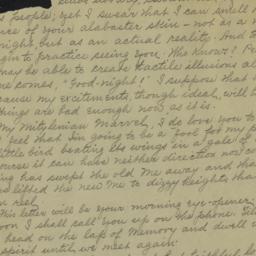 is people; yet I swear that I can smell
nce of your alabaster skin - not as a
night, but as an actual reality. And
gin to practice seeing you. Who knows?
may be able to create tactile illusions al
e comes, "Good-night!" I suppose that
cause my excitement, though ideal, will b
things are bad enough, now as it is.
My Mitylenian Marvel, I do love you to
I feel that I'm going to be a "fool for my
little bird beating its wings in a gale of
ourse it can have neither direction nor
ing has swept the old me away and tha
as lifted the new me to dizzy heights, tha
en reel.
This letter will be your morning eye-opener
oon I shall call you up on the phone.
head on the lap of Memory and dwell
spirit until we meet again.